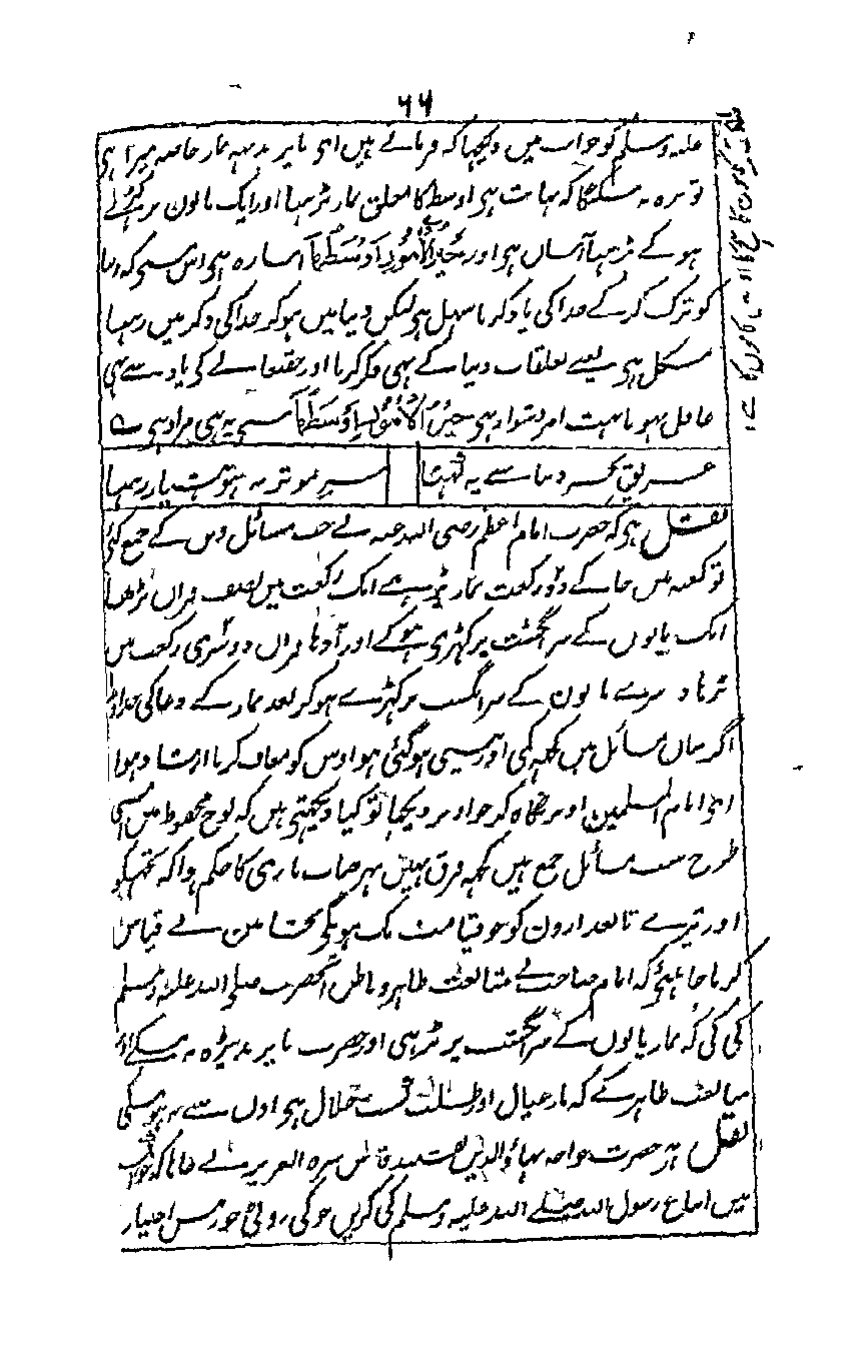 ۶۶
علیہ وسلم کو خواب میں دیکھا کہ فرماتے ہیں ای بایزید یہہ نماز خاصہ میرا ہی
تو پڑہ نہ سکیگا کہ نہایت ہی اوسط کا معلق نماز پڑہنا اور ایک پانون پر کھڑے
ہو کے پڑہنا آسان ہی اور خَیرُ الاُمُورِ اَوسَطُہَا اشارہ ہی اس سی کہ دنیا
کو ترک کر کے خدا کی یاد کرنا سہل ہی لیکن دنیا میں ہو کر خدا کی ذکر میں رہنا
مشکل ہی یعنے تعلقات دنیا کے بہی فکر کرنا اور حقتعالے کی یاد سے بہی
غافل نہونا بہت امر دشوار ہی خَیرُ الاُمُورِ اَوسَطُہَا سی یہ ہی مراد ہی
غریق بحر دنیا سے یہ کہنا سر مو تر نہ ہو ہشیار رہنا
نقل ہی کہ حضرت امام اعظم رضی اللہ عنہ نے جب مسائل دین کے جمع کئی
تو کعبہ میں جا کے دو رکعت نماز پڑہے ایک رکعت میں نصف قران پڑھا
ایک پانوں کے سر انگشت پر کھڑی ہو کے اور آدہا قران دوسری رکعت میں
پڑہا دوسرے پانون کے سر انگشت پر کھڑے ہو کر بعد نماز کے دعا کی خداوندا
اگر بیان مسائل میں کچہہ کمی اور بیشی ہو گئی ہو اوس کو معاف کرنا ارشاد ہوا
ای امام المسلمین اوپر نگاہ کر جو اوپر دیکھا تو کیا دیکھتی ہیں کہ لوح محفوظ میں اسی
طرح سب مسائل جمع ہیں کچہہ فرق نہیں پہر جناب باری کا حکم ہوا کہ تجہکو
اور تیرے تابعدارون کو جو قیامت تک ہونگی بخشا مین نے قیاس
کرنا چاہیئے کہ امام صاحب نے متابعت ظاہر و باطن آنحضرت صلی اللہ علیہ وسلم
کی کی کہ نماز پانوں کے سر انگشت پر پڑہی اور حضرت بایزید پڑہ نہ سکے اور
متابعت ظاہر کے کہ بار عیال اور کسب حلال ہی اون سے نہو سکی
نقل ہی حضرت خواجہ بہاؤالدین نقشبند قدس سرہ العزیز نے چاہا کہ
میں اتباع رسول اللہ صلے اللہ علیہ وسلم کی کریں جو کی روٹی اختیار